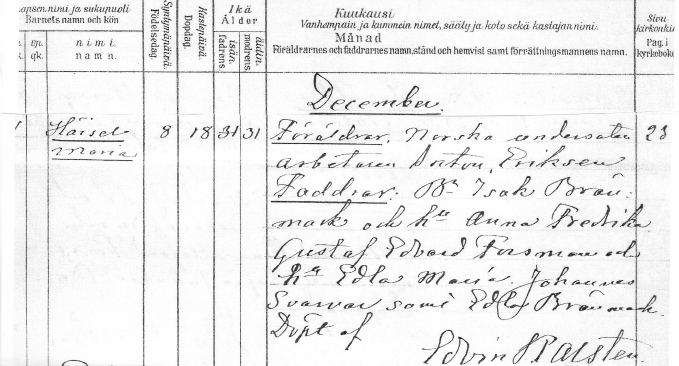 apsen nimi ja sukupuoli
Barnets namn och kön
vp.
gk.
nimi.
namn.
Syntymäpäivä.
Födelsedag.
Kastepäivä.
Dopdag.
Ikä
Ålder
isän.
fadrens.
äidin.
modrens.
Kuukausi
Vanhempain ja kummein nimet, sääty ja koto sekä kastajan nimi.
Månad
Föräldrarnes och faddrarnes namn, stånd och hemvist samt förrättningsmannens namn.
Sivu
kirkonkir
Pag. i
kyrkoboke
December.
Maria
8 18 31 31
Föräldrar, Norska undersåten 23
arbetaren Anton Eriksen
Faddrar: Isak Brän-
mark och Anna Fredrika
Gustaf Edvard Forsman och
Edla Maria. Johannes
Svarvar samt Edla Brännmark.
Döpt af
Edvin Karsten.